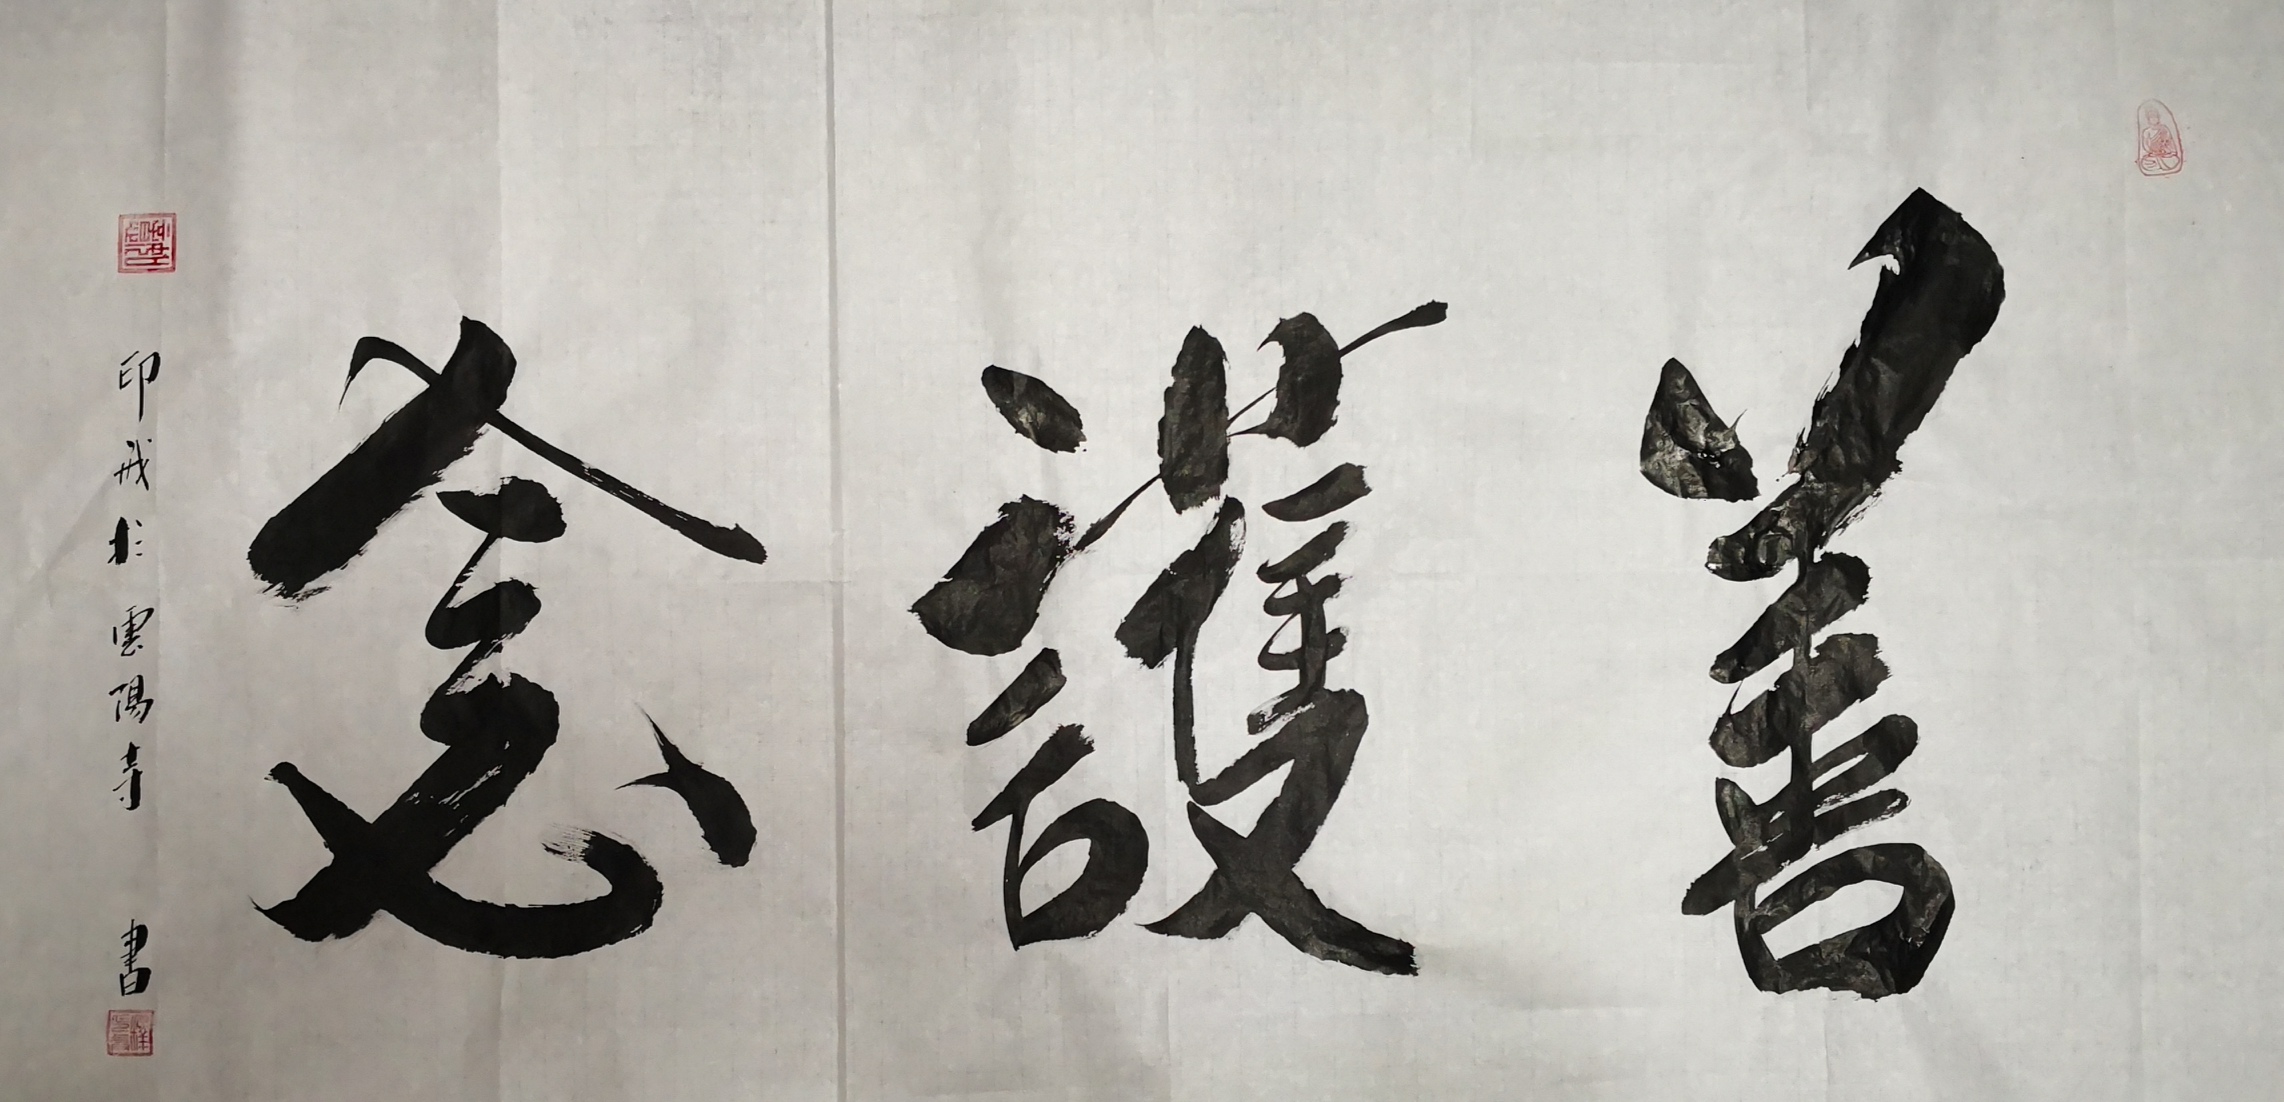 善護念
印戒於雲陽寺書